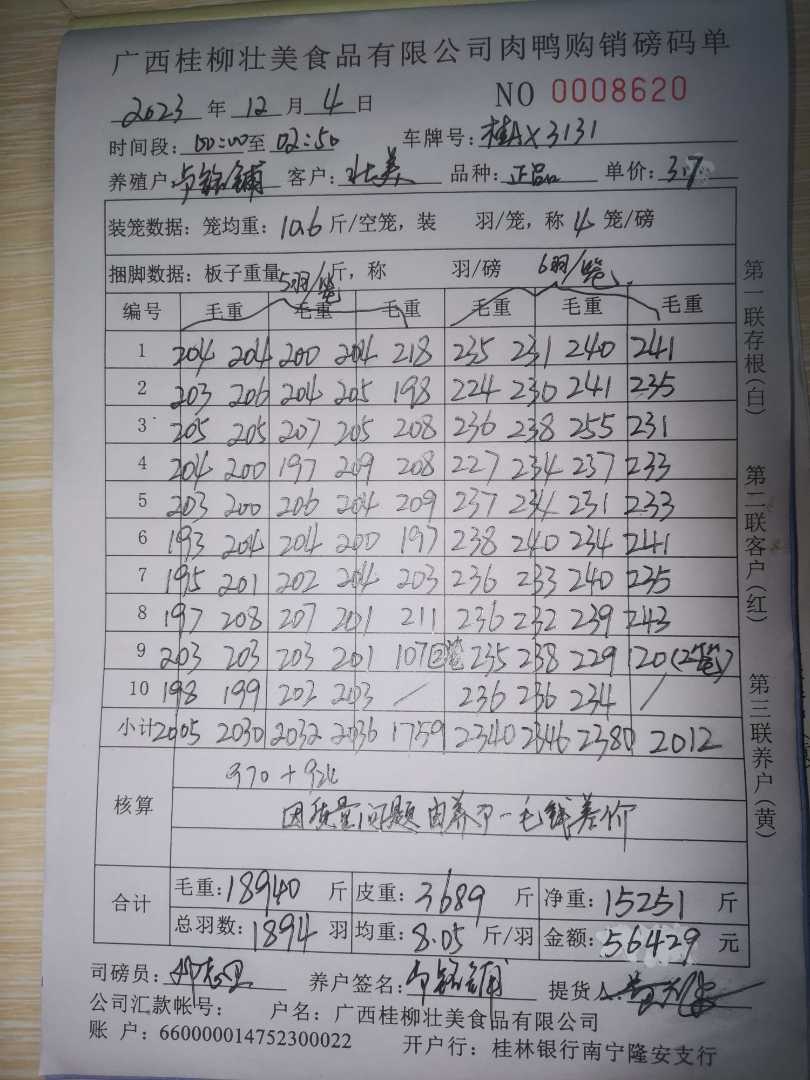 广西桂柳壮美食品有限公司肉鸭购销磅码单
2023 年 12 月 4 日 NO 0008620
时间段: 00:00 至 02:50 车牌号: 桂AX3131
养殖户 客户: 壮美 品种: 正品 单价: 3.7
装笼数据: 笼均重: 10.6 斤/空笼, 装 羽/笼, 称 4 笼/磅
捆脚数据: 板子重量 斤, 称 羽/磅
5羽/笼 6羽/笼
编号 毛重 毛重 毛重 毛重 毛重 毛重
1 204 204 200 204 218 235 231 240 241
2 203 206 204 205 198 224 230 241 235
3 205 205 207 205 208 236 238 255 231
4 204 200 197 209 208 227 234 237 233
5 203 200 206 204 209 237 234 231 233
6 193 204 204 200 197 238 240 234 241
7 195 201 202 204 203 236 233 240 235
8 197 208 207 201 211 236 232 239 243
9 203 203 203 201 107 235 238 229 120(2笼)
10 198 199 202 203 / 236 236 234 /
小计 2005 2030 2032 2036 1759 2340 2346 2380 2012
核算 970 + 924
因质量问题由养户一毛钱差价
合计 毛重: 18940 斤 皮重: 3689 斤 净重: 15251 斤
总羽数: 1894 羽 均重: 8.05 斤/羽 金额: 56429 元
司磅员: 养户签名: 提货人:
公司汇款帐号: 户名: 广西桂柳壮美食品有限公司
账 户: 660000014752300022 开户行: 桂林银行南宁隆安支行
第一联存根(白) 第二联客户(红) 第三联养户(黄)